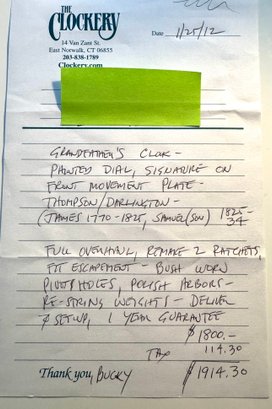 THE
CLOCKERY
14 Van Zant St.
East Norwalk, CT 06855
203-838-1789
Clockery.com
Date 1/25/12
GRANDFATHER'S CLOK -
PAINTED DIAL, SIGNATURE ON
FRONT MOVEMENT PLATE -
THOMPSON/DARLINGTON -
(JAMES 1770-1825, SAMUEL (SON) 1825-
34
FULL OVERHAUL, REMAKE 2 RATCHETS,
FIT ESCAPEMENT - BUSH WORN
PIVOT HOLES, POLISH ARBORS -
RE-STRING WEIGHTS - DELIVER
& SETUP, 1 YEAR GUARANTEE
$ 1800.-
TAX 114.30
Thank you, BUCKY $ 1914.30